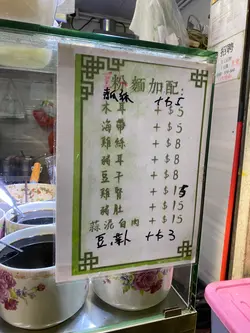 粉麵加配:
瓢絲 +$5
木耳 +$5
海帶 +$5
雞絲 +$8
豬耳 +$8
豆干 +$8
雞腎 +$15
豬肚 +$15
蒜泥白肉 +$15
豆卜 +$3
招聘